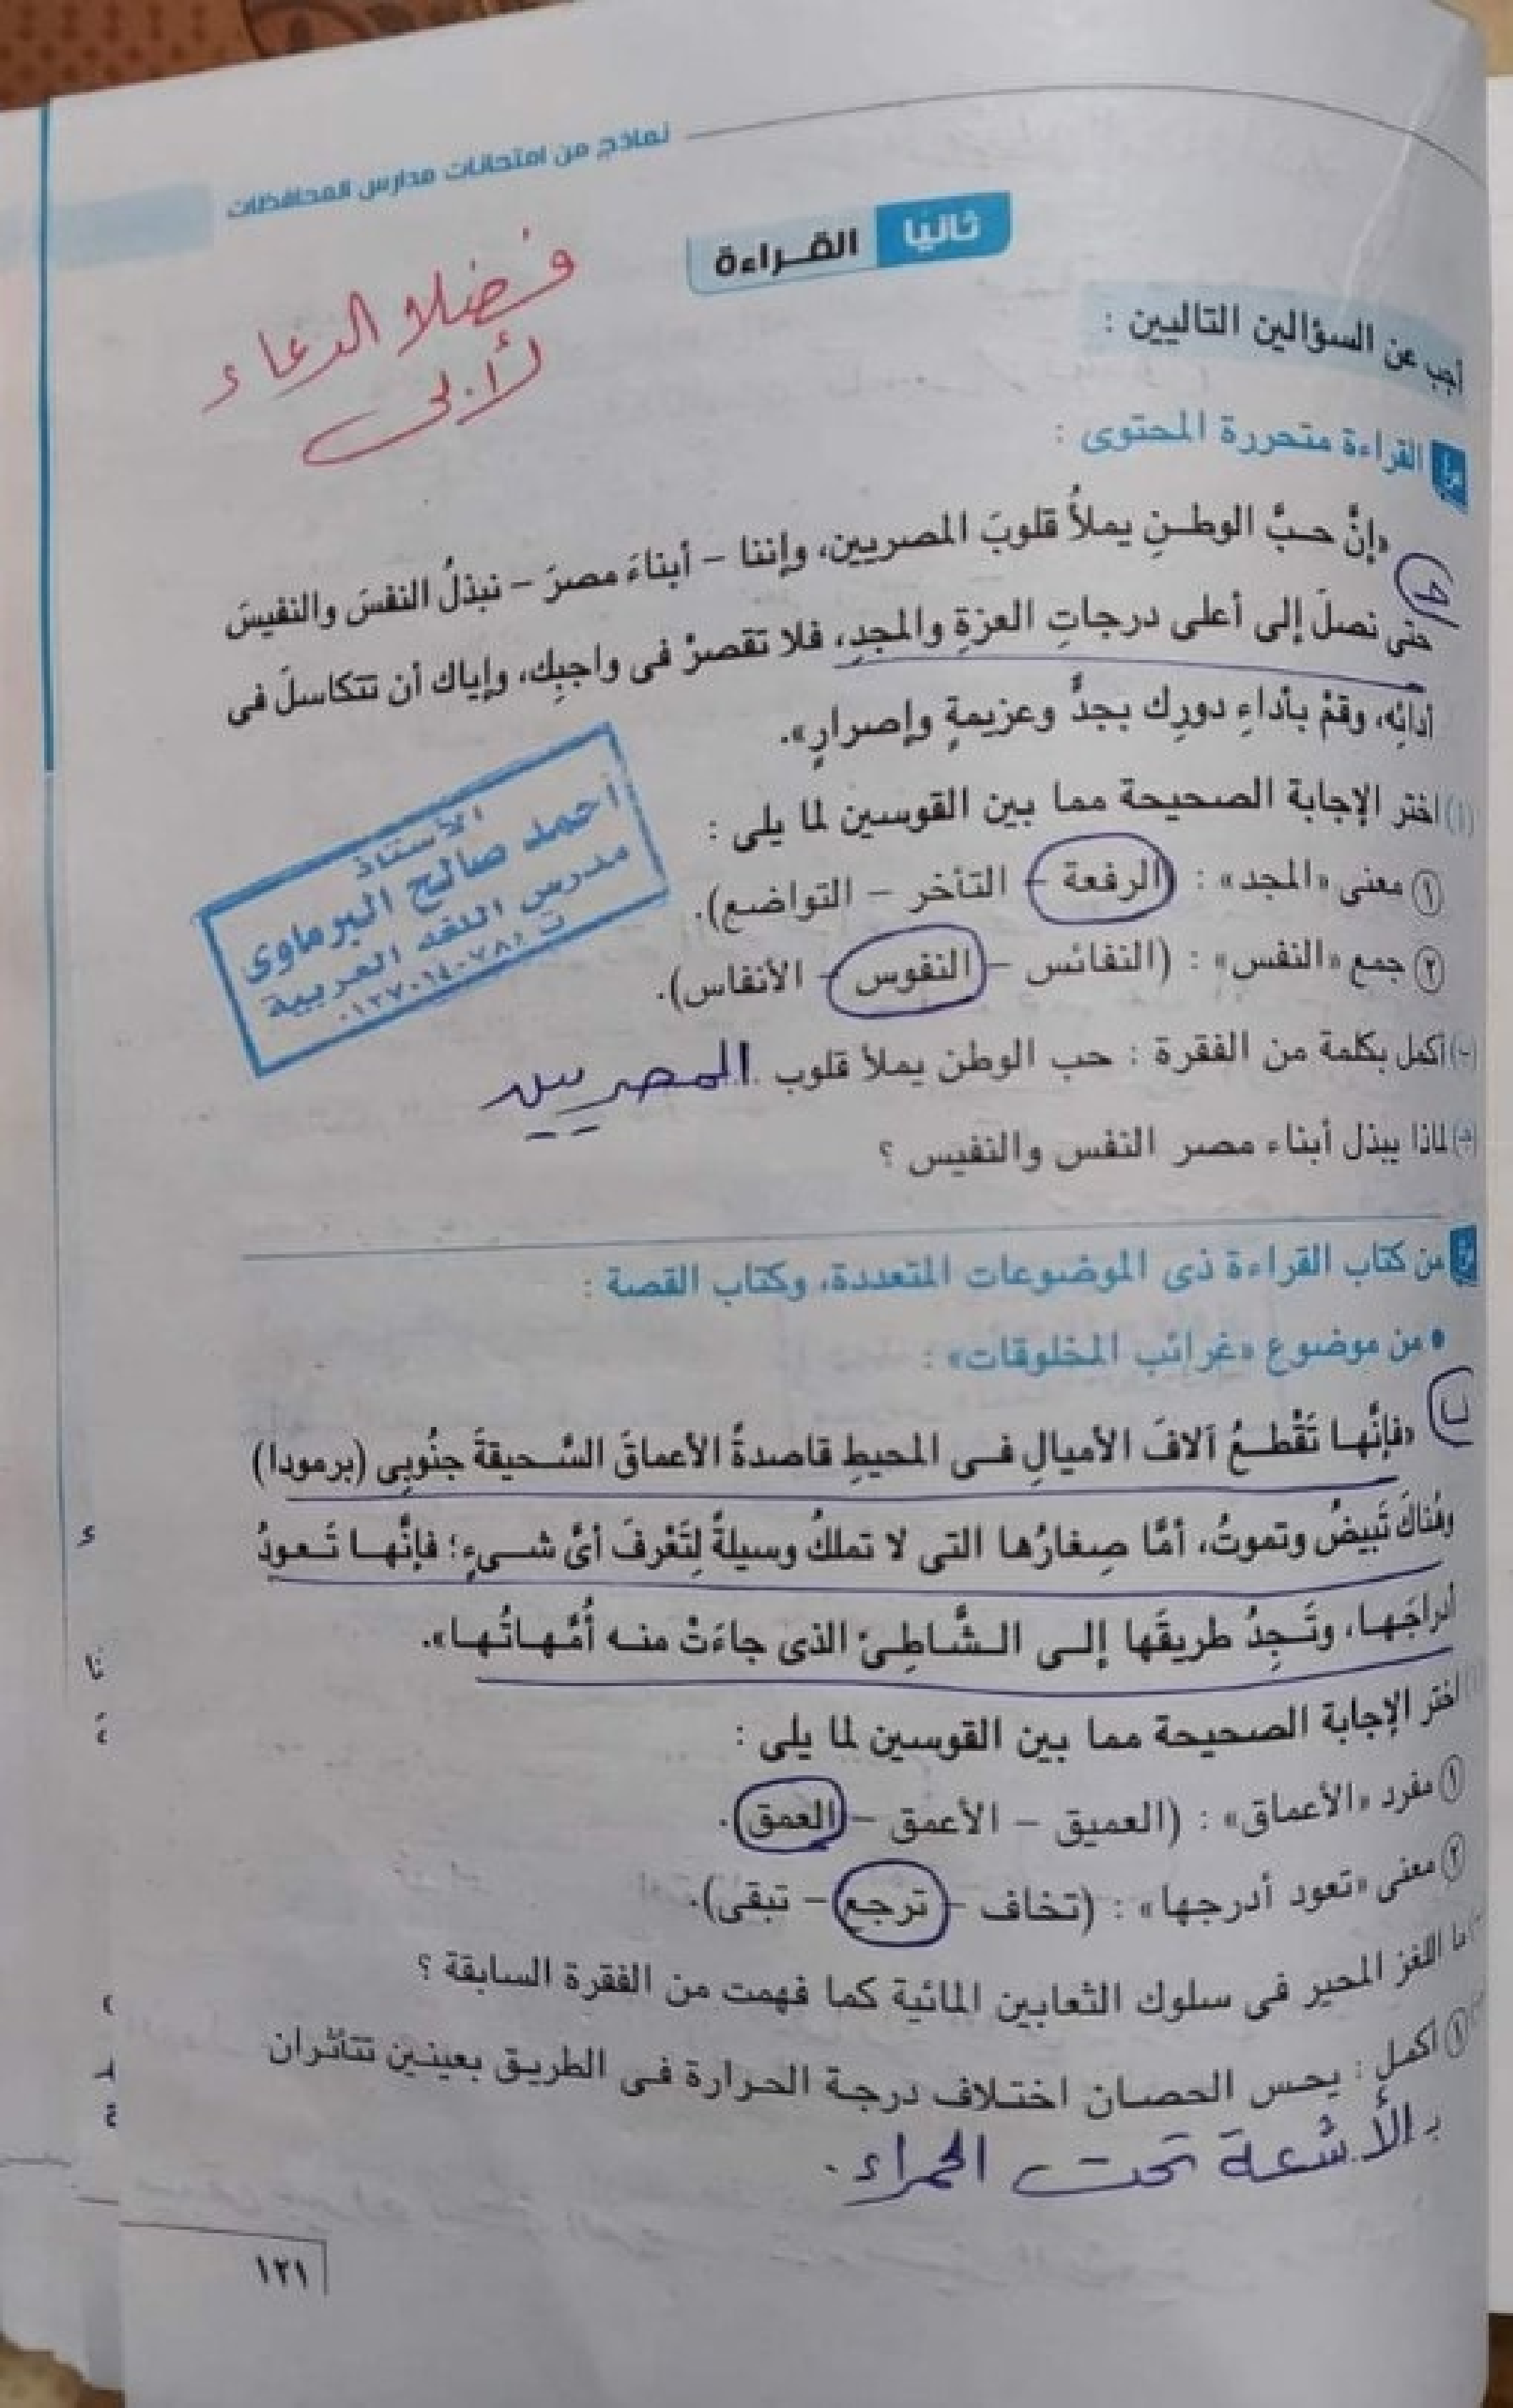 نماذج من امتحانات مدارس المحافظات
ثانيا القراءة
فضلا الدعاء
لأبى
أجب عن السؤالين التاليين :
القراءة متحررة المحتوى :
«إنَّ حبَّ الوطنِ يملأُ قلوبَ المصريين، وإننا - أبناءَ مصرَ - نبذلُ النفسَ والنفيسَ
حتى نصلَ إلى أعلى درجاتِ العزةِ والمجدِ، فلا تقصرْ فى واجبِك، وإياك أن تتكاسلَ فى
أدائِه، وقمْ بأداءِ دورِك بجدٍّ وعزيمةٍ وإصرارٍ».
(أ) اختر الإجابة الصحيحة مما بين القوسين لما يلى :
١ معنى «المجد» : (الرفعة - التأخر - التواضع).
٢ جمع «النفس» : (النفائس - النفوس - الأنفاس).
(ب) أكمل بكلمة من الفقرة : حب الوطن يملأ قلوب المصريين
(جـ) لماذا يبذل أبناء مصر النفس والنفيس ؟
الأستاذ
أحمد صالح البرماوى
مدرس اللغة العربية
من كتاب القراءة ذى الموضوعات المتعددة، وكتاب القصة :
• من موضوع «غرائب المخلوقات» :
«فإنَّها تَقْطعُ آلافَ الأميالِ فى المحيطِ قاصدةً الأعماقَ السَّحيقةَ جنُوبِى (برمودا)
وهُناكَ تَبيضُ وتموتُ، أمَّا صِغارُها التى لا تملكُ وسيلةً لِتَعْرفَ أىَّ شىءٍ؛ فإنَّها تَعودُ
أدراجَها، وتَجِدُ طريقَها إلى الشَّاطِئ الذى جاءَتْ منه أُمَّهاتُها».
اختر الإجابة الصحيحة مما بين القوسين لما يلى :
١ مفرد «الأعماق» : (العميق - الأعمق - العمق).
٢ معنى «تعود أدرجها» : (تخاف - ترجع - تبقى).
ما اللغز المحير فى سلوك الثعابين المائية كما فهمت من الفقرة السابقة ؟
١ أكمل : يحس الحصان اختلاف درجة الحرارة فى الطريق بعينين تتأثران
بـ الأشعة تحت الحمراء .
١٢١